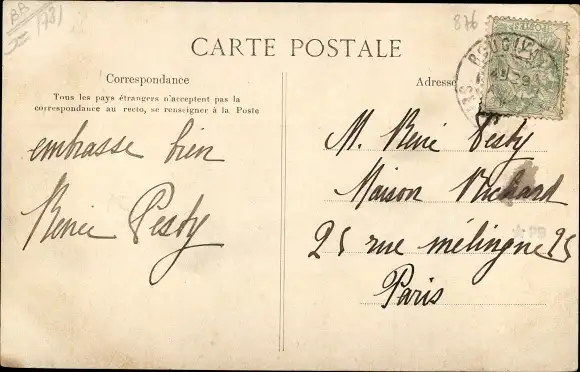 BB
1731
876
CARTE POSTALE
Correspondance
Adresse
Tous les pays étrangers n'acceptent pas la
correspondance au recto, se renseigner à la Poste
embrasse bien
Renée Pesty
M. René Pesty
Maison Richard
25 rue mélingue 25
Paris